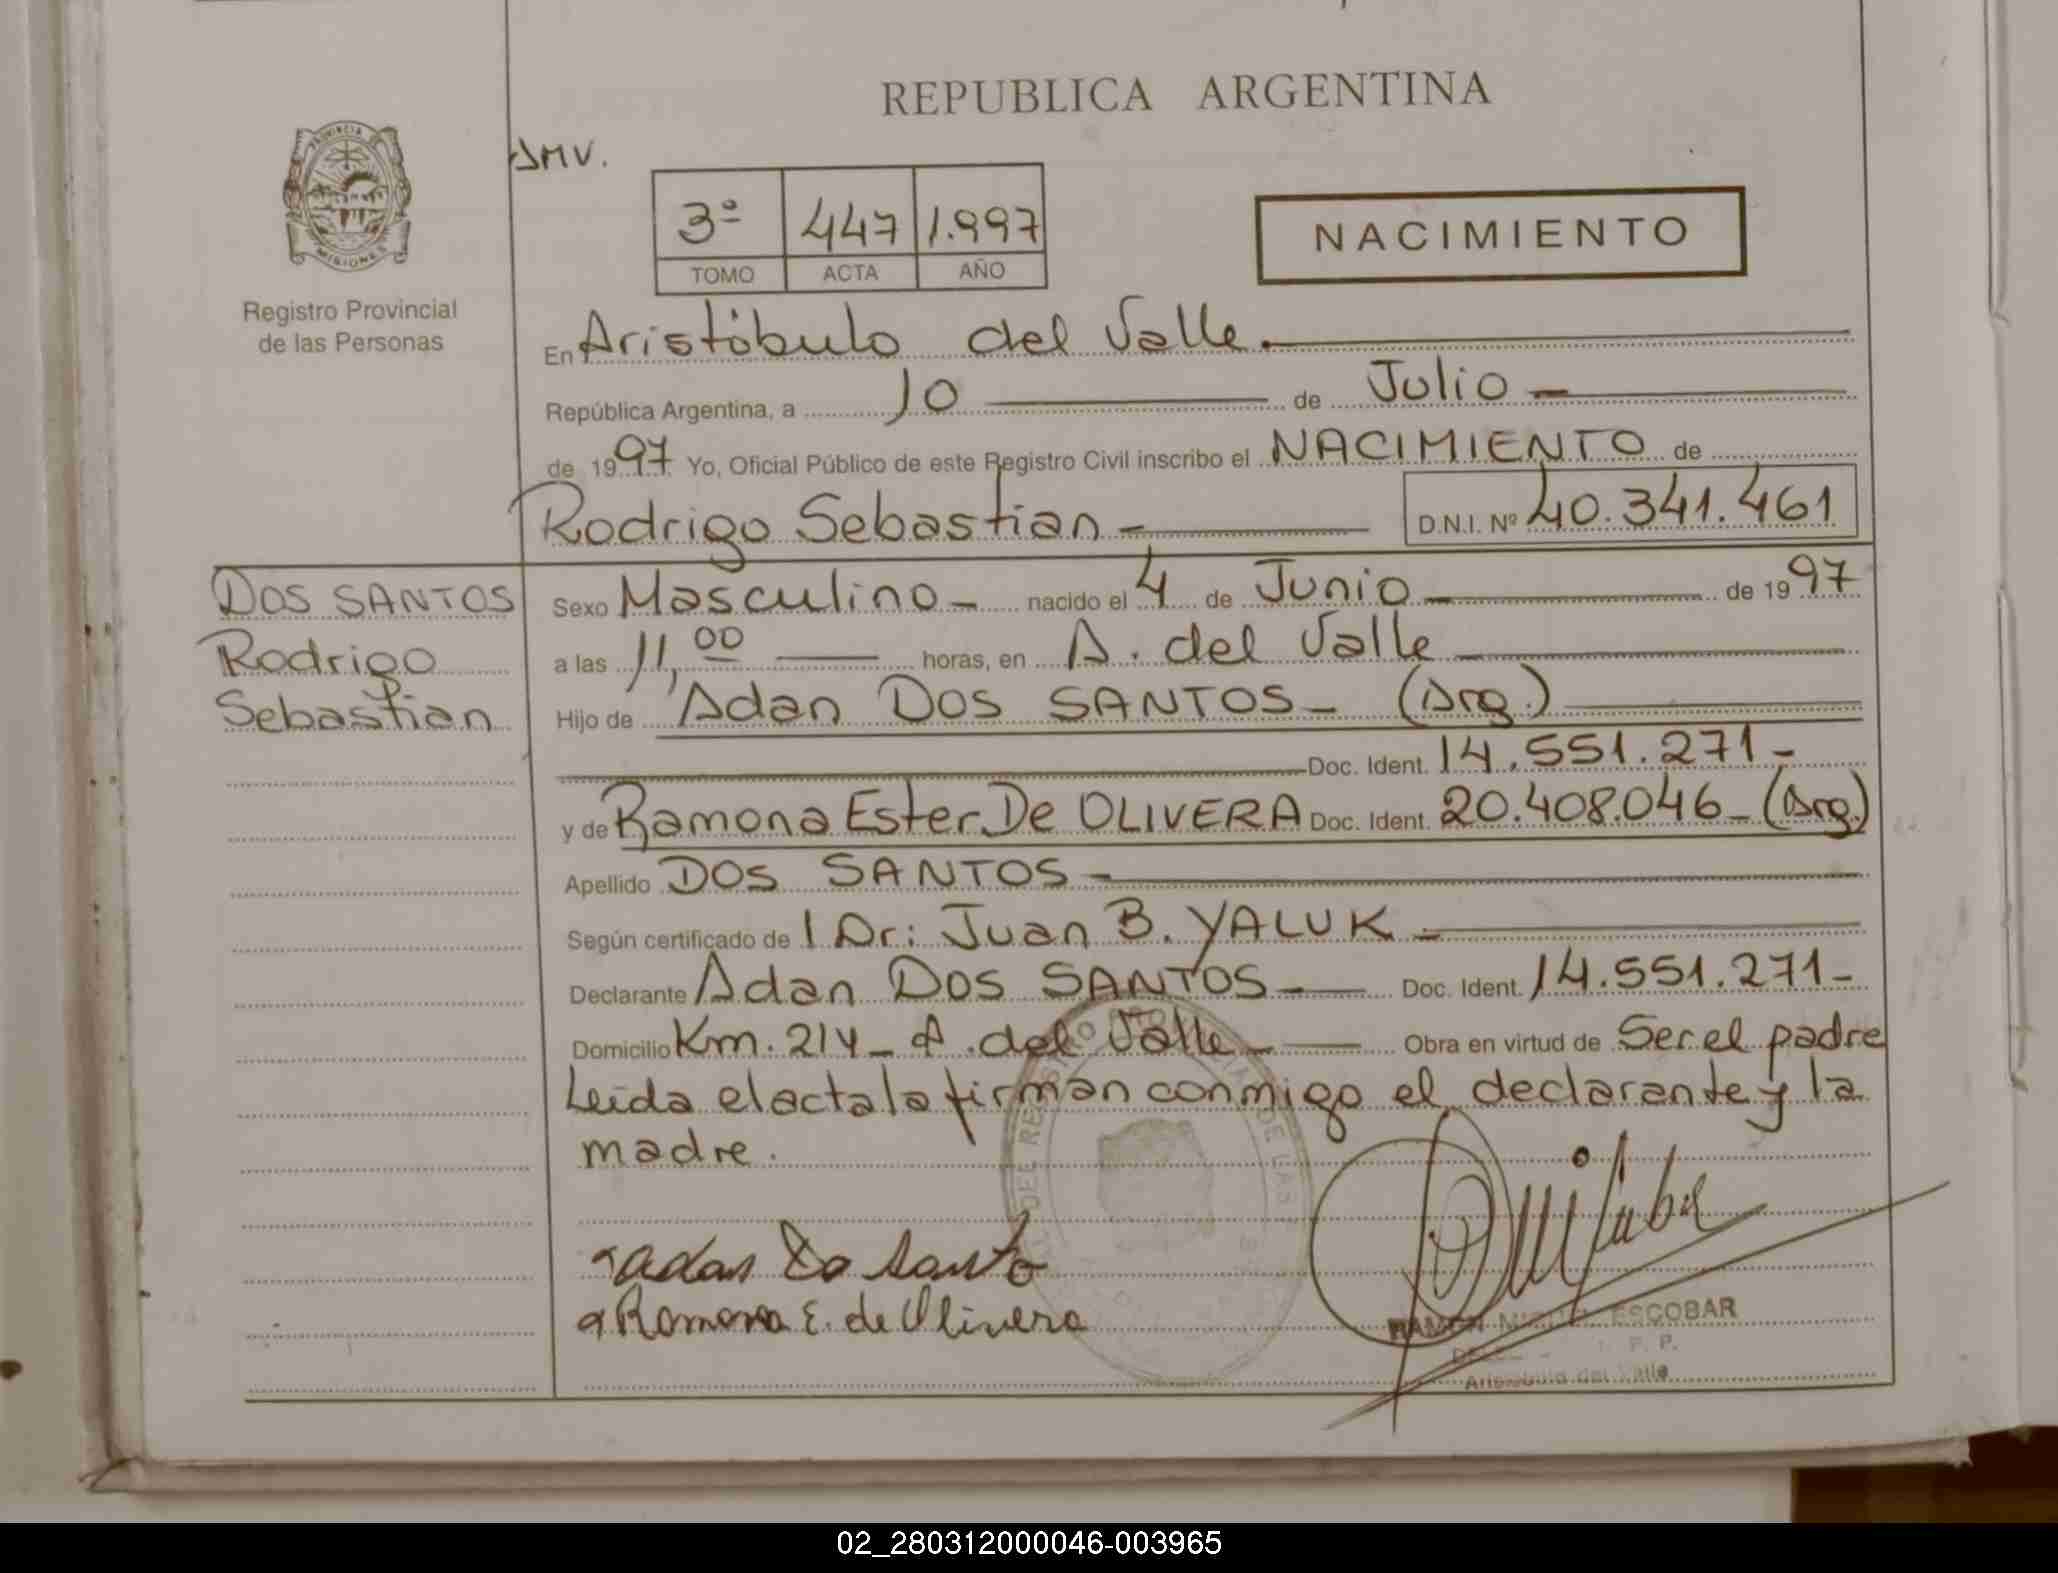 REPUBLICA ARGENTINA
PROVINCIA
MISIONES
Registro Provincial
de las Personas
3º 447 1.997
TOMO ACTA AÑO
NACIMIENTO
En Aristóbulo del Valle.
República Argentina, a 10 de Julio
de 1997 Yo, Oficial Público de este Registro Civil inscribo el NACIMIENTO de
Rodrigo Sebastian D.N.I. Nº 40.341.461
DOS SANTOS
Rodrigo
Sebastian
Sexo Masculino nacido el 4 de Junio de 1997
a las 11,00 horas, en A. del Valle
Hijo de Adan DOS SANTOS (Arg.)
Doc. Ident. 14.551.271
y de Ramona Ester De OLIVERA Doc. Ident. 20.408.046 (Arg.)
Apellido DOS SANTOS
Según certificado de l Dr: Juan B. YALUK
Declarante Adan DOS SANTOS Doc. Ident. 14.551.271
Domicilio Km. 214 A. del Valle Obra en virtud de Ser el padre
Leida el acta la firman conmigo el declarante y la
madre.
Ramona E. de Olivera
ESCOBAR
Aristóbulo del Valle
02_280312000046-003965